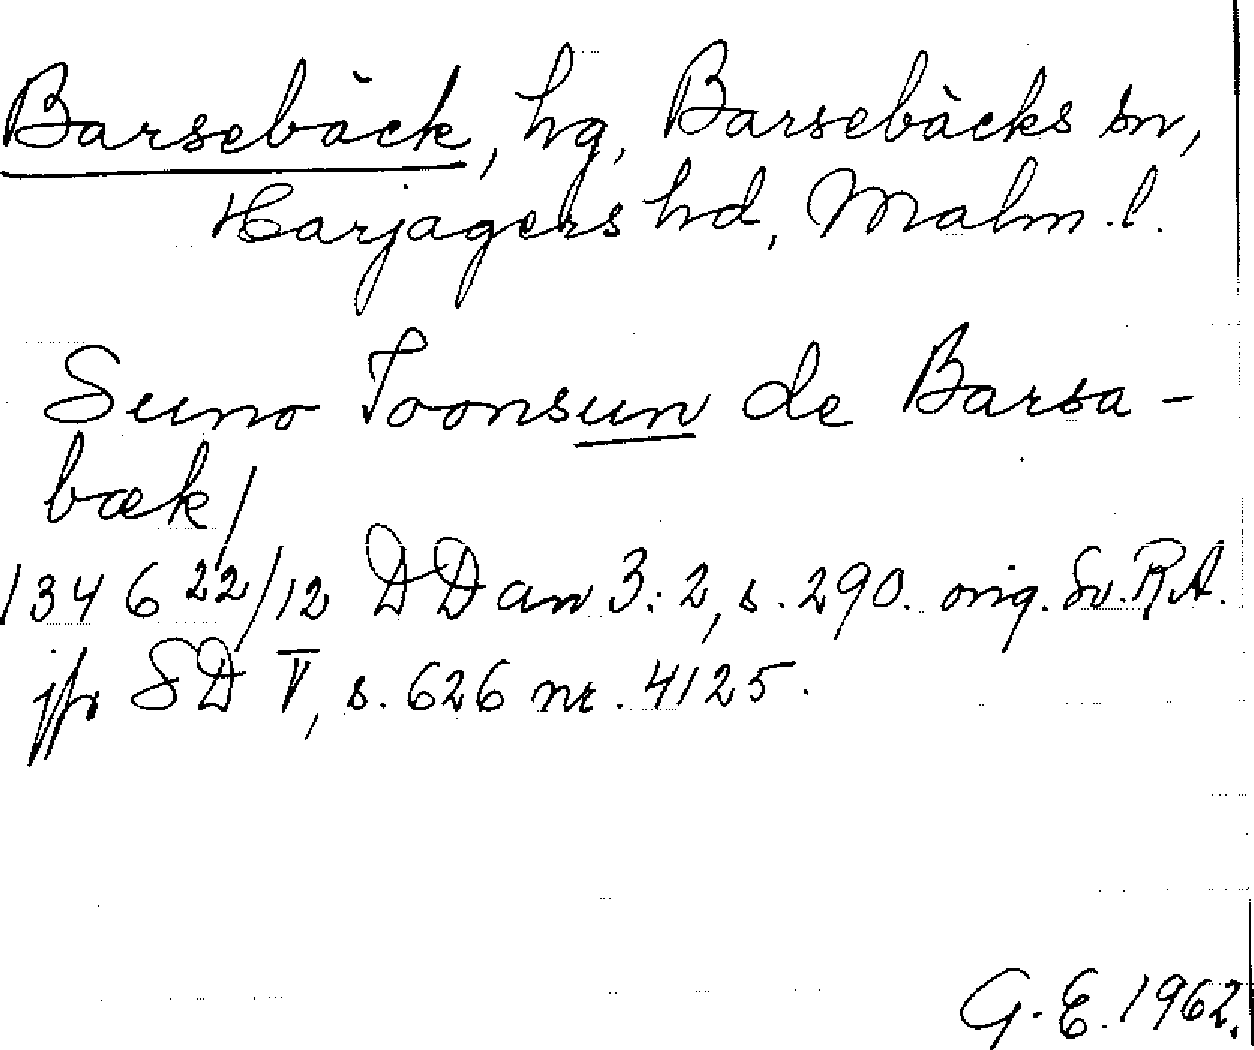 Barsebäck, hg, Barsebäcks sn,
Harjagers hd, Malm. l.
Suno Toonsun de Barsa-
bæk/
1346 22/12 DDan 3:2, s. 290. orig. Sv. RA.
jfr SD V, s. 626 nr. 4125.
G. E. 1962.